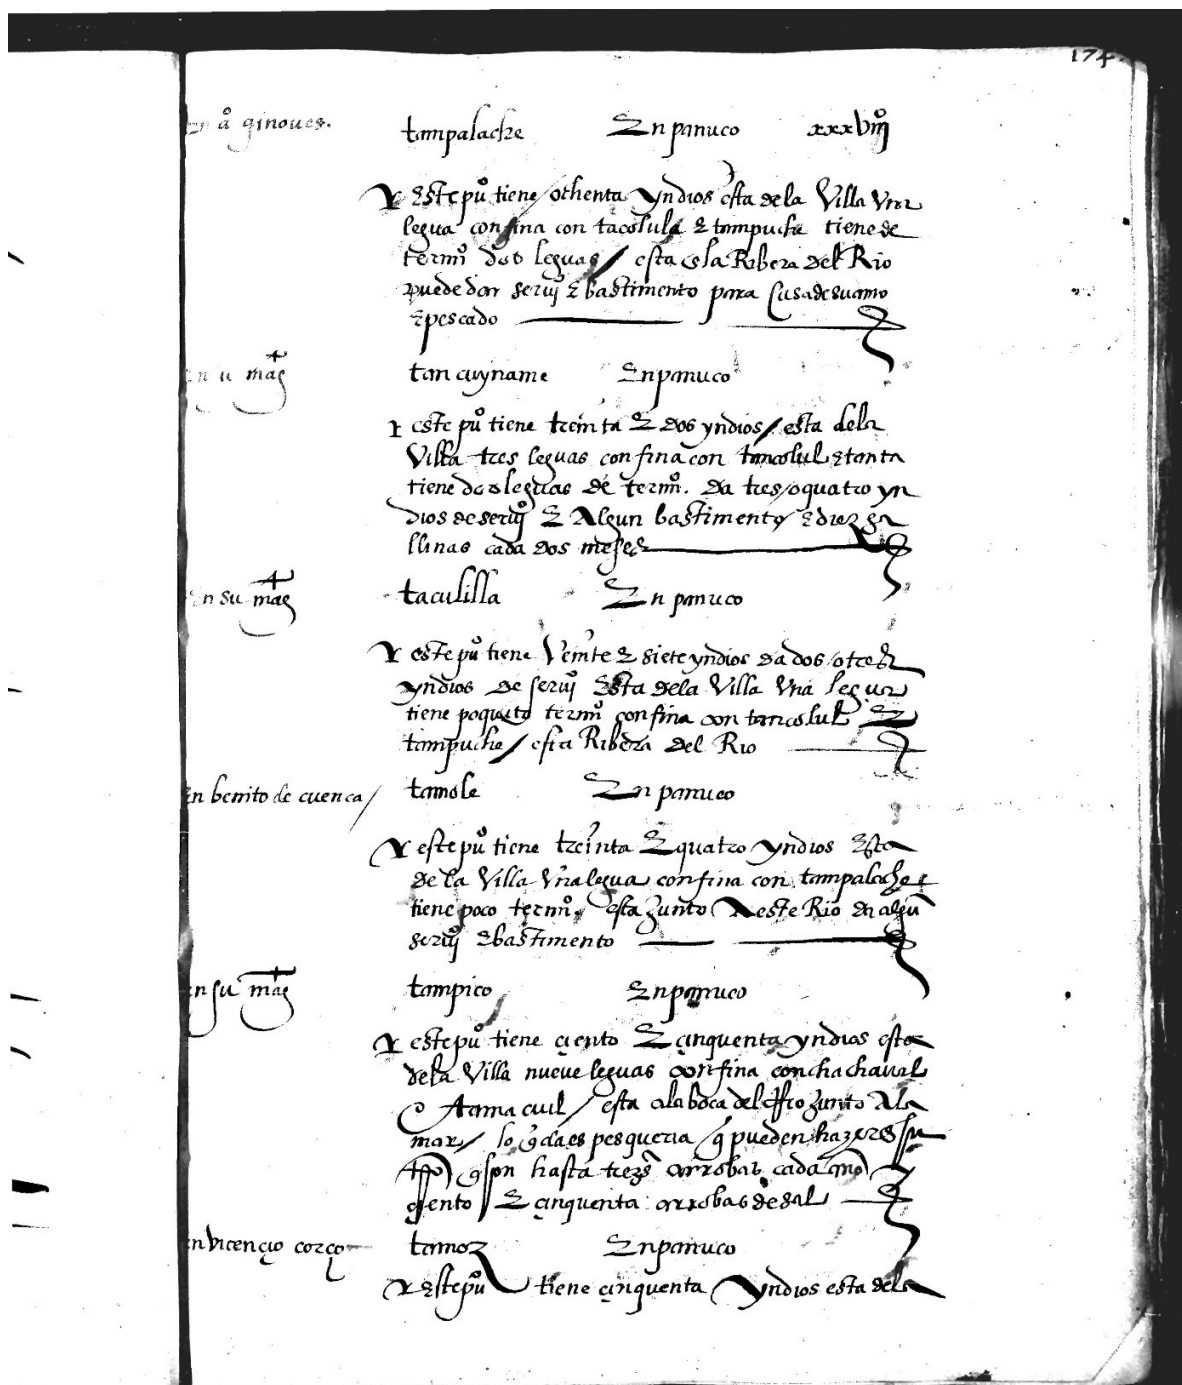 174
en ju° ginoues. tampalache En panuco xxxviij°
Este pu° tiene / ochenta yndios esta de la Villa Vna
legua confina con tacolula E tampuche tiene de
term° dos leguas / esta es la Ribera del Rio
puede dar serui° E bastimento para Casa de su amo
E pescado
en su mag tancuyname En panuco
este pu° tiene treinta E dos yndios / esta dela
Villa tres leguas confina con tancolul E tanta
tiene dos leguas de term°. da tres / o quatro yn
dios de serui° E Algun bastimento E diez ga
llinas cada dos meses
en su mag taculilla En panuco
este pu° tiene Veinte E siete yndios da dos / o tres
yndios de serui° Esta dela Villa Vna legua
tiene poquito term° confina con tancolul E
tampuche / esta Ribera del Rio
En benito de cuenca / tamole En panuco
este pu° tiene treinta E quatro yndios Esta
de la Villa Vna legua confina con tampalache
tiene poco term°. esta Junto A este Rio da algu
serui° E bastimento
en su mag tampico En panuco
este pu° tiene çiento E çinquenta yndios esta
dela Villa nueve leguas confina con chachaual
o tamacuil / esta ala boca del Rio Junto A la
mar / lo q da es pesqueria q pueden hazer en su
tpo q son hasta treze arrobas cada año
çiento E çinquenta arrobas de sal
en vicençio corço tamoz En panuco
Este pu° tiene çinquenta yndios esta dela